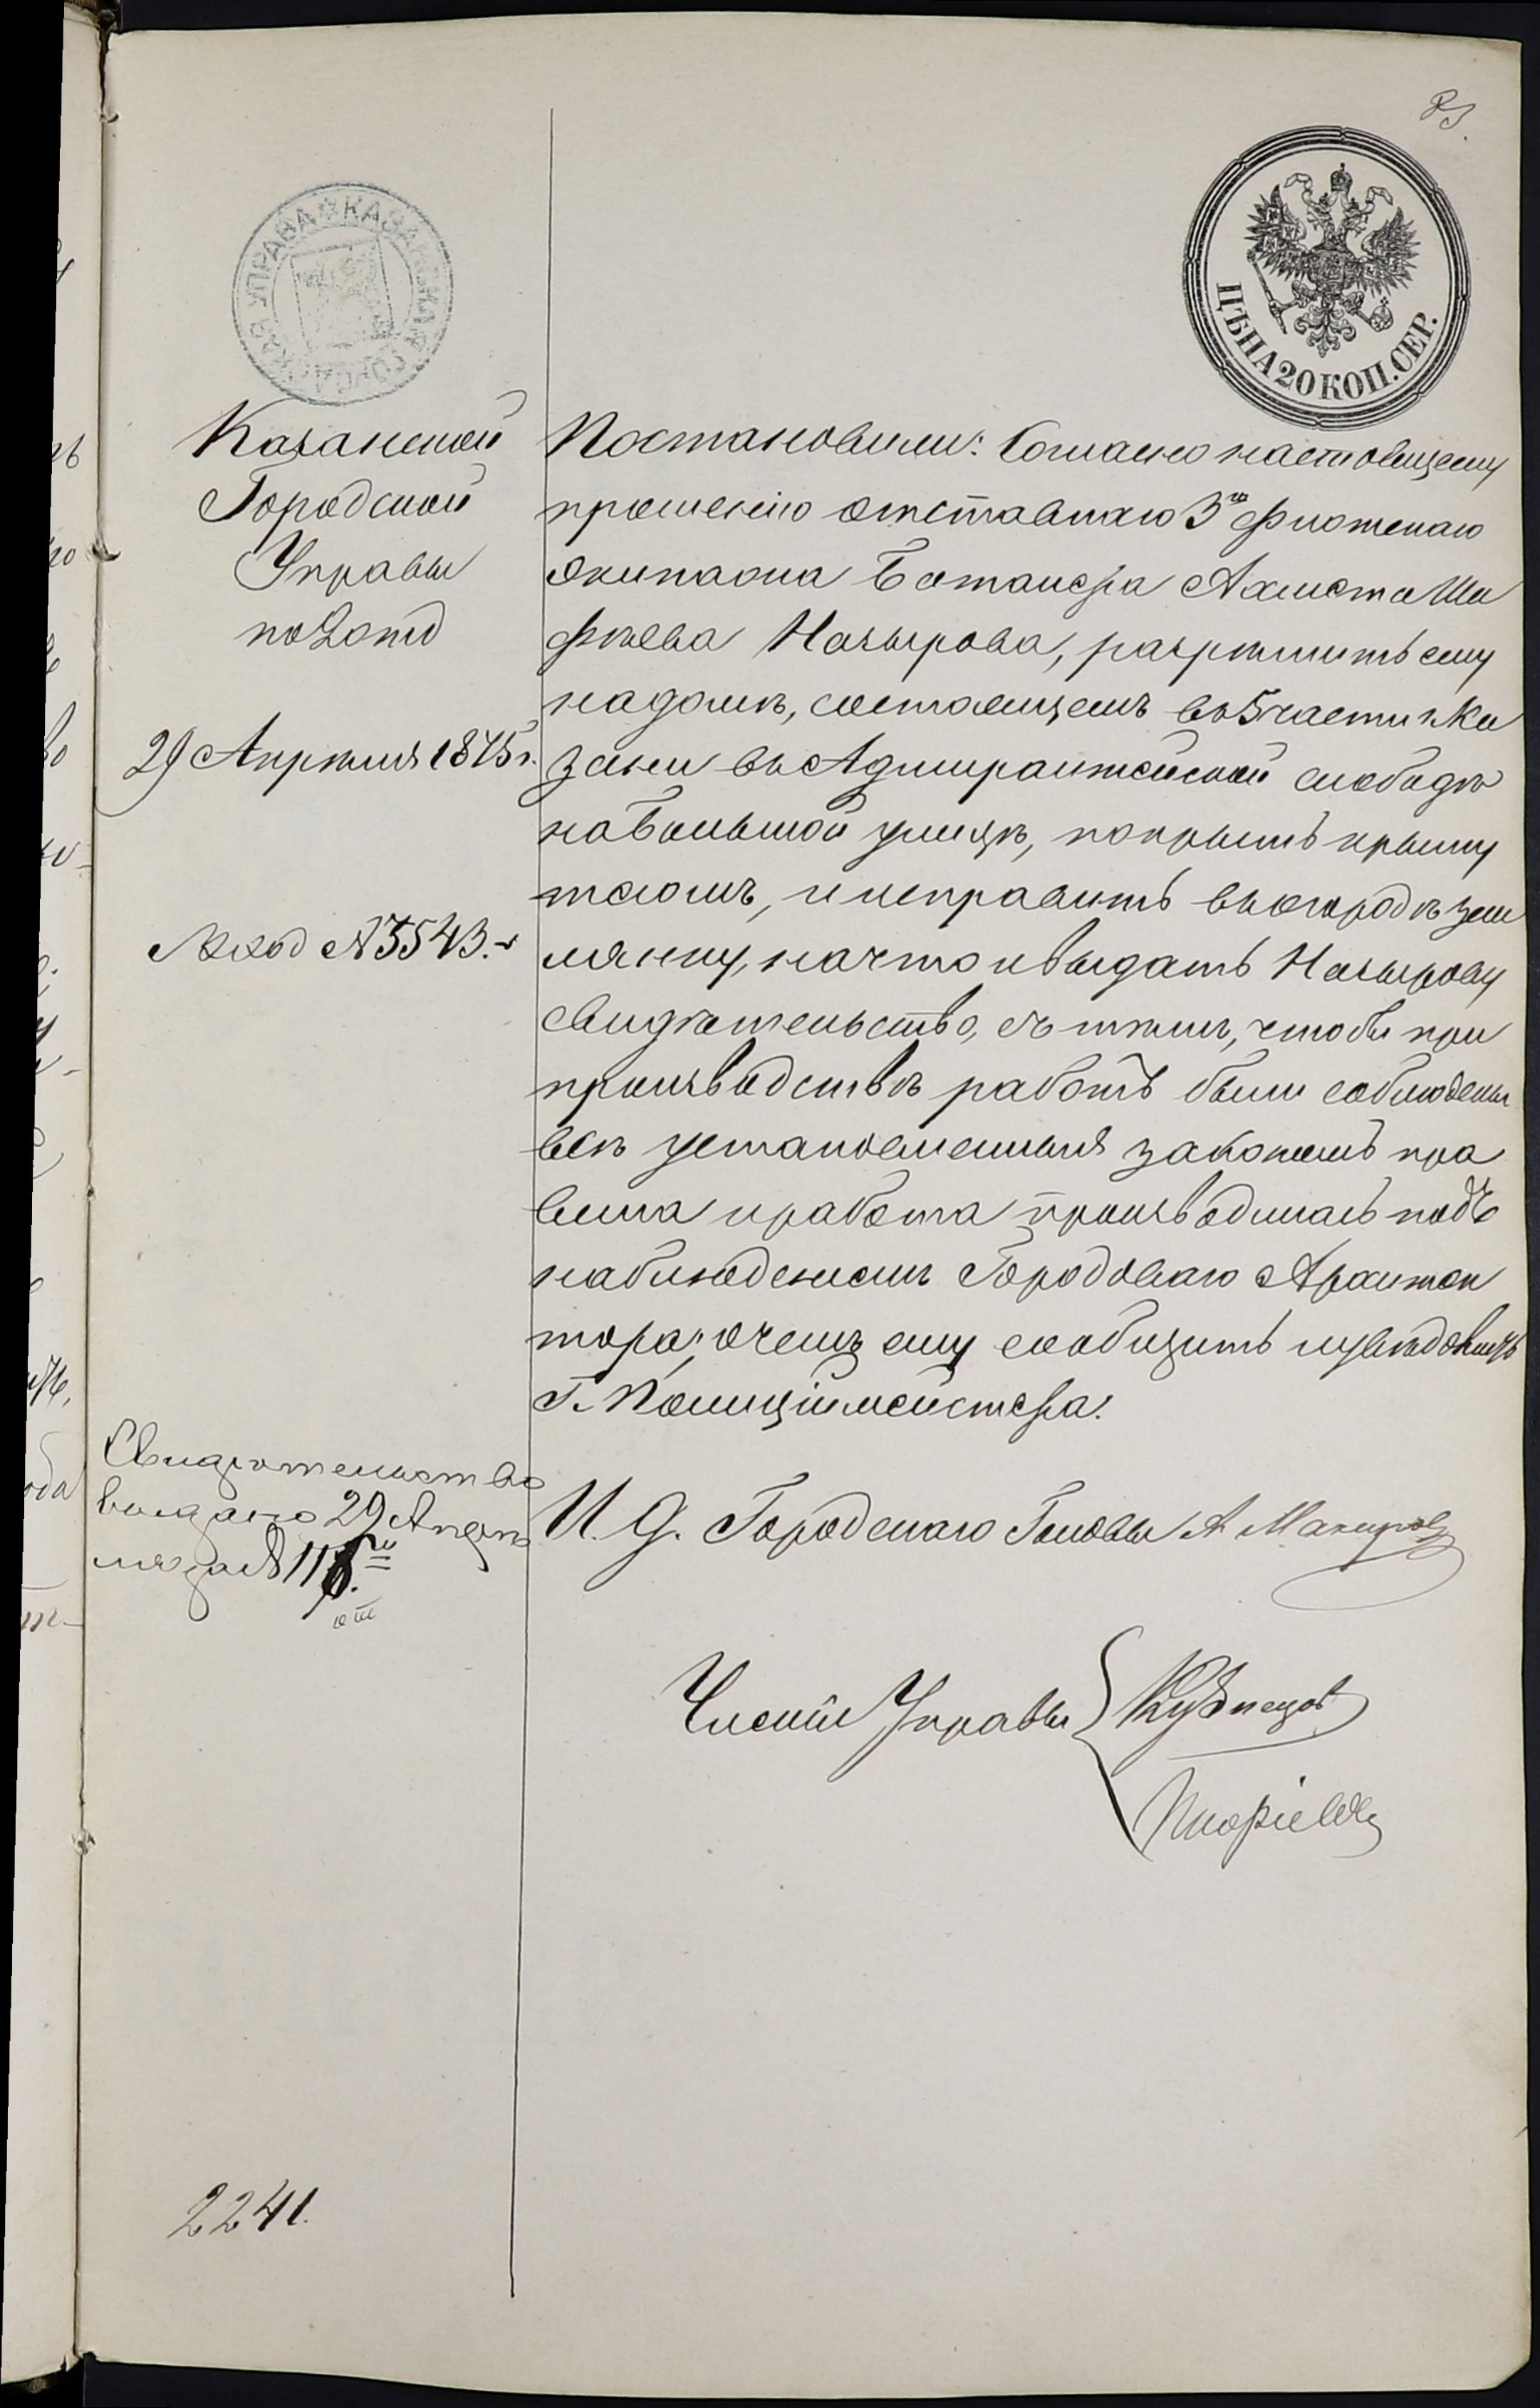 23.
КАЗАНСКАЯ ГОРОДСКАЯ УПРАВА
ЦѢНА 20 КОП. СЕР.
Казанской
Городской
Управы
по 2 отд
29 Апрѣля 1875 г.
Вход № 3543.
Постановили: Согласно настоящему
прошенію отставнаго 3го Флотскаго
Экипажа Баталера Ахмета Ша
фѣева Назырова, разрѣшить ему
на домѣ, состоящемъ въ 5 части г. Ка
зани въ Адмиралтейской слободѣ
на Большой улицѣ, покрыть крышу
тесомъ, и исправить въ огородѣ зем
лянку, на что и выдать Назырову
свидѣтельство, съ тѣмъ, чтобы при
производствѣ работъ были соблюдены
всѣ установленныя закономъ пра
вила и работа производилась подъ
наблюденіемъ Городоваго Архитек
тора; о чемъ ему сообщить и увѣдомить
Г. Полиціймейстера.
Свидѣтельство
выдано 29 Апрѣ
ля за №
И. д. Городскаго Головы А.
Члены Управы Кузнецов
2241.